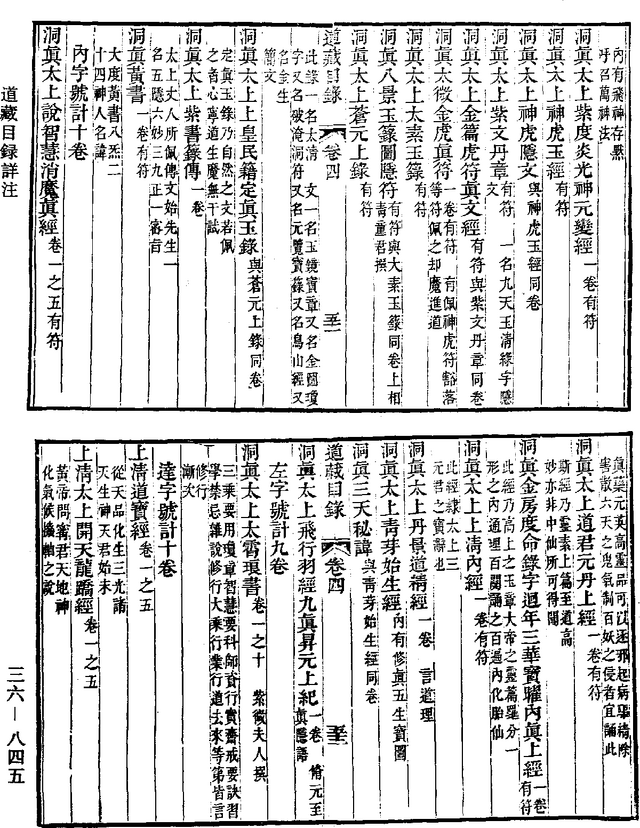 內有飛神存㸃
呼召萬神法
洞眞太上紫度炎光神元變經 一卷有符
洞眞太上神虎玉經 有符
洞眞太上神虎隱文 與神虎玉經同卷
洞眞太上紫文丹章 有符 一名九天玉清綠字隱
文
洞眞太上金篇虎符眞文經 有符與紫文丹章同卷
洞眞太微金虎眞符 一卷有符 有佩神虎符豁落
等符佩之却魔進道
洞眞太上太素玉籙 有符
洞眞八景玉籙圖隱符 有符與大素玉籙同卷上相
青童君撰
洞眞太上蒼元上錄 有符
道藏目錄 卷四 至
此錄一名太清 文一名玉鏡寶章又名金圖瓊
字又名破淹洞符又名元覽寶籙又名鳥山經又
名金生
簡文
洞眞太上上皇民籍定眞玉錄 與蒼元上錄同卷
定眞玉錄乃自然之文若佩
之者心寧道生魔無干試
洞眞太上紫書籙傳 一卷
太上丈人所佩傳文始先生一
名五隱六妙三九正一審言
洞眞黃書 一卷有符
大度黃書八炁二
十四神人名諱
內字號計十卷
洞眞太上說智慧消魔眞經 卷一之五有符
道藏目録詳注
眞藥元英高靈品可以逐邪起病驅禱除
害散六天之鬼氣制百妖之侵者宜誦此
洞眞太上道君元丹上經 一卷有符
斯經乃靈素上篇至道高
妙亦非中仙所可得聞
洞眞金房度命錄字迴年三華寶曜內眞上經 一卷
有符
此經乃高上之玉章大帝之靈篇羅分一
形之內通理百關誦之百遍內化胎仙
洞眞太上上清內經 一卷有符
此經隸太上三
元君之寶辭也
洞眞太上丹景道精經 一卷 言道理
洞眞太上青芽始生經 內有修眞五生寶圖
洞眞三天秘諱 與青芽始生經同卷
道藏目錄 卷四 至
洞眞太上飛行羽經九眞昇元上紀 一卷 脩元至
眞隱語
左字號計九卷
洞眞太上太霄琅書 卷一之十 紫微夫人撰
三乘要用瓊章智慧要科師資行實齋戒要訣習
學禁忌雜說修行大乘行業行道去來等第皆言
修行
漸次
達字號計十卷
上清道寶經 卷一之五
從天品化生三光諸
天生神天君始末
上清太上開天龍蹻經 卷一之五
黃帝問甯君天地神
化氣候機軸之說
三六—八四五